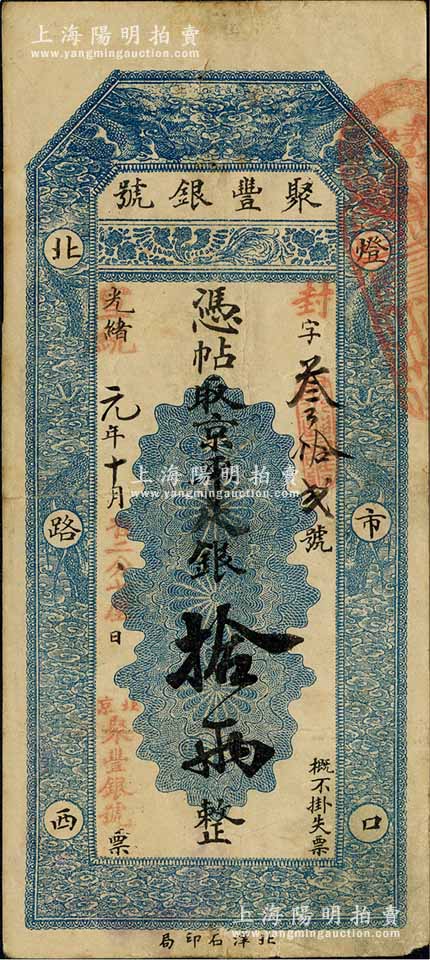 上海陽明拍賣
www.yangmingauction.com
聚豐銀號
燈市口
北路西
封字叁百拾弍號
憑帖取京平足銀拾兩整
光緒
宣統
元年十月
日
北京
聚豐銀號
票
概不掛失票
北洋石印局
上海陽明拍賣
www.yangmingauction.com
上海陽明拍賣
www.yangmingauction.com